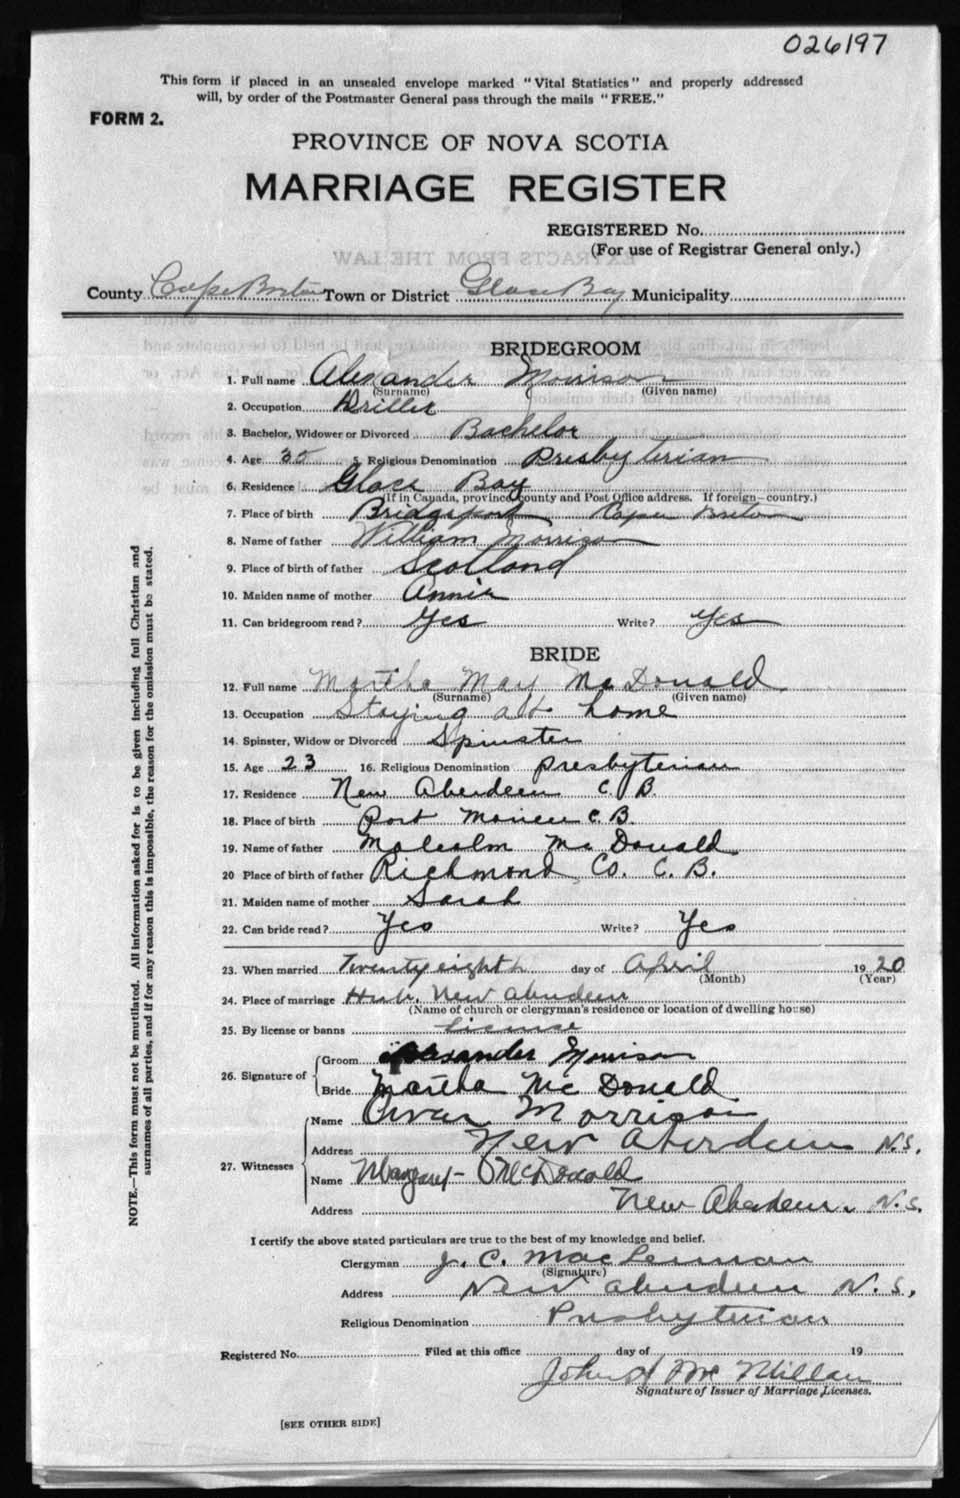 026197
This form if placed in an unsealed envelope marked "Vital Statistics" and properly addressed
will, by order of the Postmaster General pass through the mails "FREE."
FORM 2.
PROVINCE OF NOVA SCOTIA
MARRIAGE REGISTER
REGISTERED No.
(For use of Registrar General only.)
EXTRACTS FROM THE LAW
County Cape Breton Town or District Glace Bay Municipality
BRIDEGROOM
1. Full name Alexander Morrison
(Surname) (Given name)
2. Occupation Driller
3. Bachelor, Widower or Divorced Bachelor
4. Age 30 5. Religious Denomination Presbyterian
6. Residence Glace Bay
(If in Canada, province, county and Post Office address. If foreign—country.)
7. Place of birth Bridgeport Cape Breton
8. Name of father William Morrison
9. Place of birth of father Scotland
10. Maiden name of mother Annie
11. Can bridegroom read? Yes Write? Yes
BRIDE
12. Full name Martha May McDonald
(Surname) (Given name)
13. Occupation Staying att home
14. Spinster, Widow or Divorced Spinster
15. Age 23 16. Religious Denomination Presbyterian
17. Residence New Aberdeen C. B.
18. Place of birth Port Morien C. B.
19. Name of father Malcolm McDonald
20 Place of birth of father Richmond Co. C. B.
21. Maiden name of mother Sarah
22. Can bride read? Yes Write? Yes
23. When married Twenty eighth day of April 1920
(Month) (Year)
24. Place of marriage New Aberdeen
(Name of church or clergyman's residence or location of dwelling house)
25. By license or banns License
26. Signature of Groom Alexander Morrison
Bride Martha McDonald
27. Witnesses Name Morrison
Address New Aberdeen N.S.
Name Margaret McDonald
Address New Aberdeen. N.S.
I certify the above stated particulars are true to the best of my knowledge and belief.
Clergyman J. C. MacLennan
(Signature)
Address New Aberdeen N. S.
Religious Denomination Presbyterian
Registered No. Filed at this office day of 19
John A McMillan
Signature of Issuer of Marriage Licenses.
[SEE OTHER SIDE]
NOTE.—This form must not be mutilated. All information asked for is to be given including full Christian and
surnames of all parties, and if for any reason this is impossible, the reason for the omission must be stated.